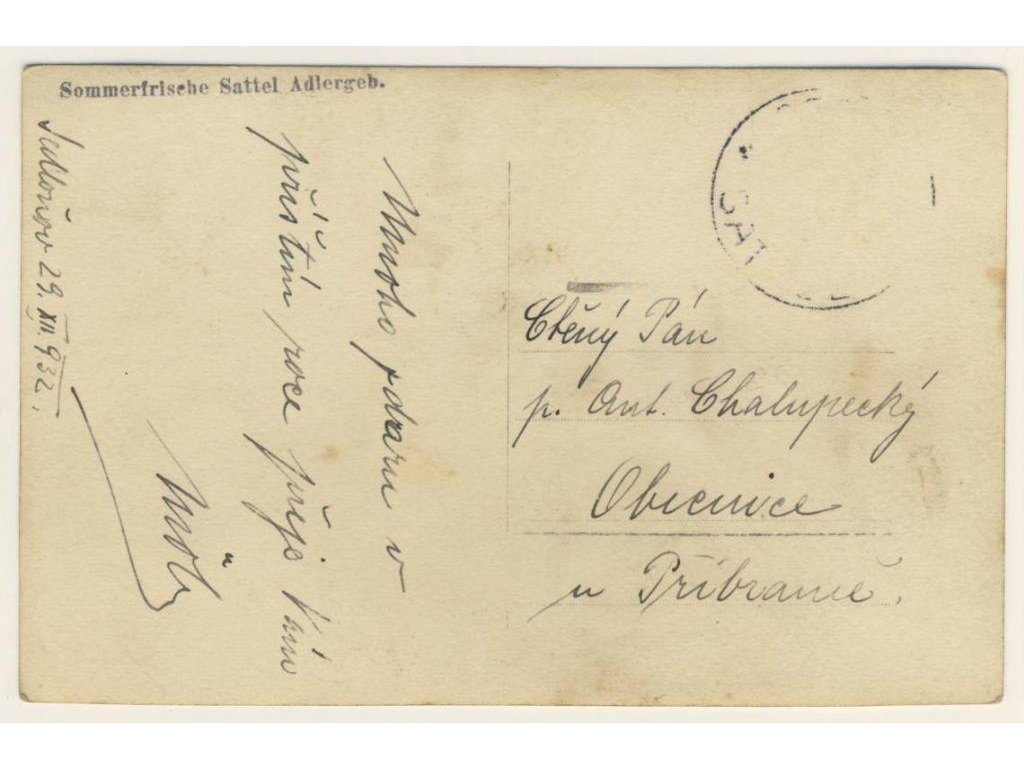 Sommerfrische Sattel Adlergeb.
Sedloňov 29. XII. 932.
Mnoho zdaru v
příštím roce přeje Vám
SAT
Ctěný Pán
p. Ant. Chalupecký
Obecnice
u Příbramě.